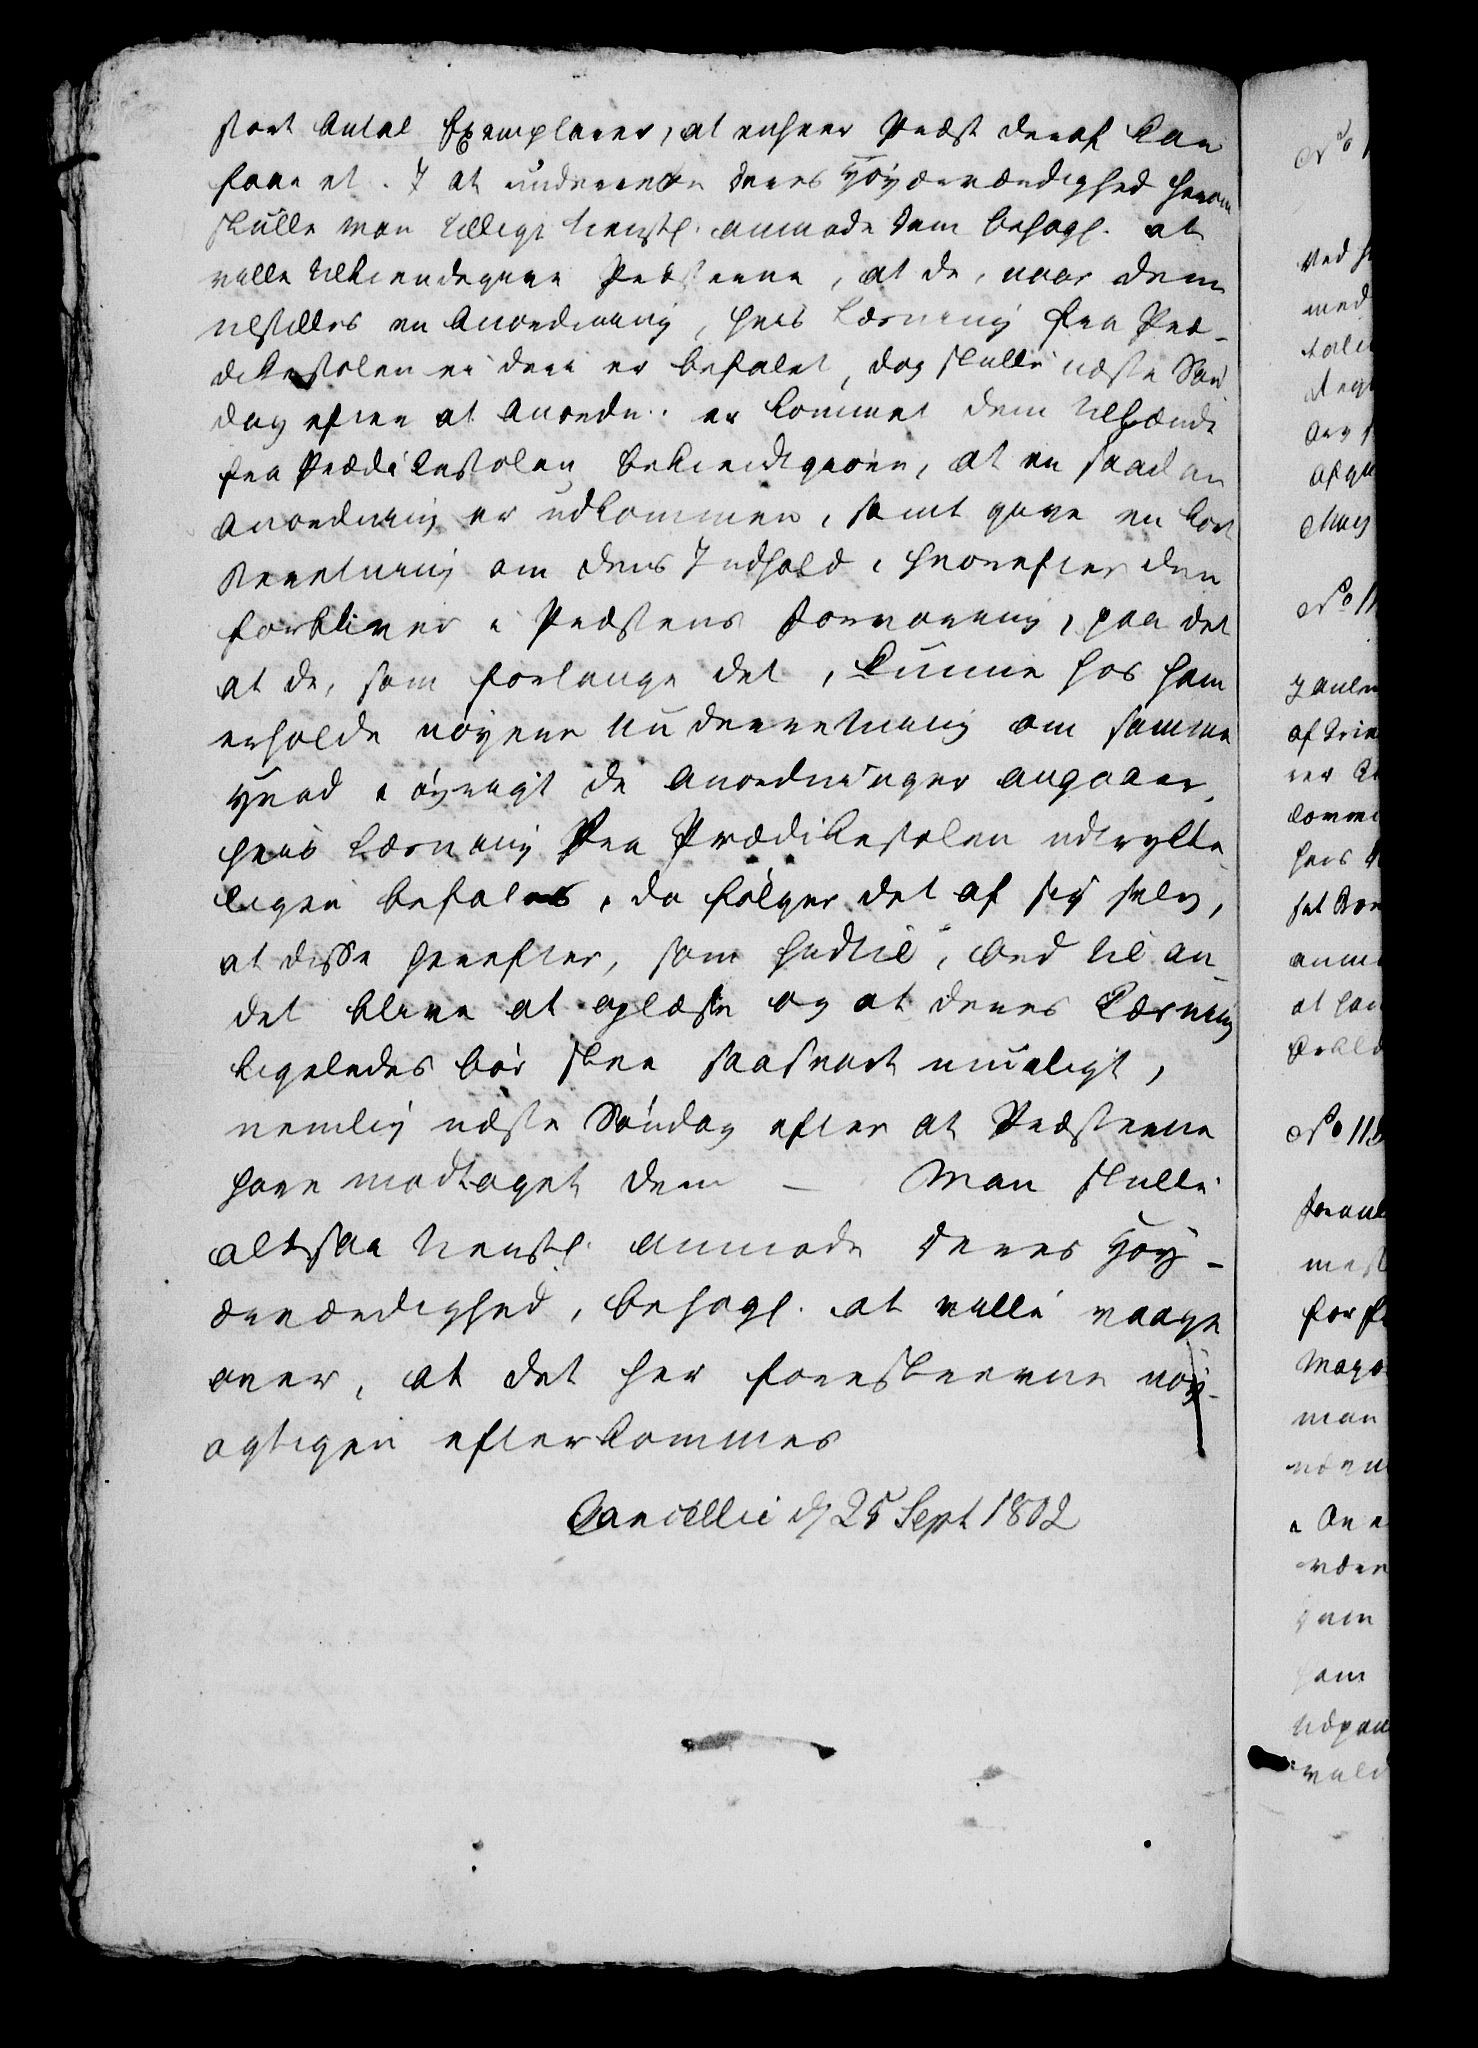 stort Antal Exemplarer, at enhver Præst deraf kan
faae et. I at underrette Deres Høyærværdighed herom
skulle man tillige tienstl. anmode Dem behagl. at
ville tilkiendegive Præsterne, at de, naar dem
tilstilles en Anordning, hvis Læsning fra Præ-
dikestolen ei deri er befalet, dog skulle næste Søn
dag efter at Anordn. er kommet dem tilhænde
fra Prædikestolen bekiendtgiøre, at en saadan
Anordning er udkommen, samt give en kort
Beretning om dens Indhold, hvorefter den
forbliver i Præstens Forvaring, paa det
at de, som forlange det, kunne hos ham
erholde nøyere Underretning om samme
Hvad i øvrigt de Anordninger angaaer,
hvis Læsning fra Prædikestolen udtrykke
ligen befales, da følger det af sig selv,
at disse herefter, som hidtil, Ord til an-
det blive at oplæse og at deres Læsning
ligeledes bør skee saasnart mueligt,
nemlig næste Søndag efter at Præsterne
have modtaget dem — Man skulle
altsaa tienstl. anmode Deres Høy-
ærværdighed, behagl. at ville vaage
over, at det her foreskrevne nøy-
agtigen efterkommes
Cancellie d 25 Sept 1802
No 11
No 11
man
ham